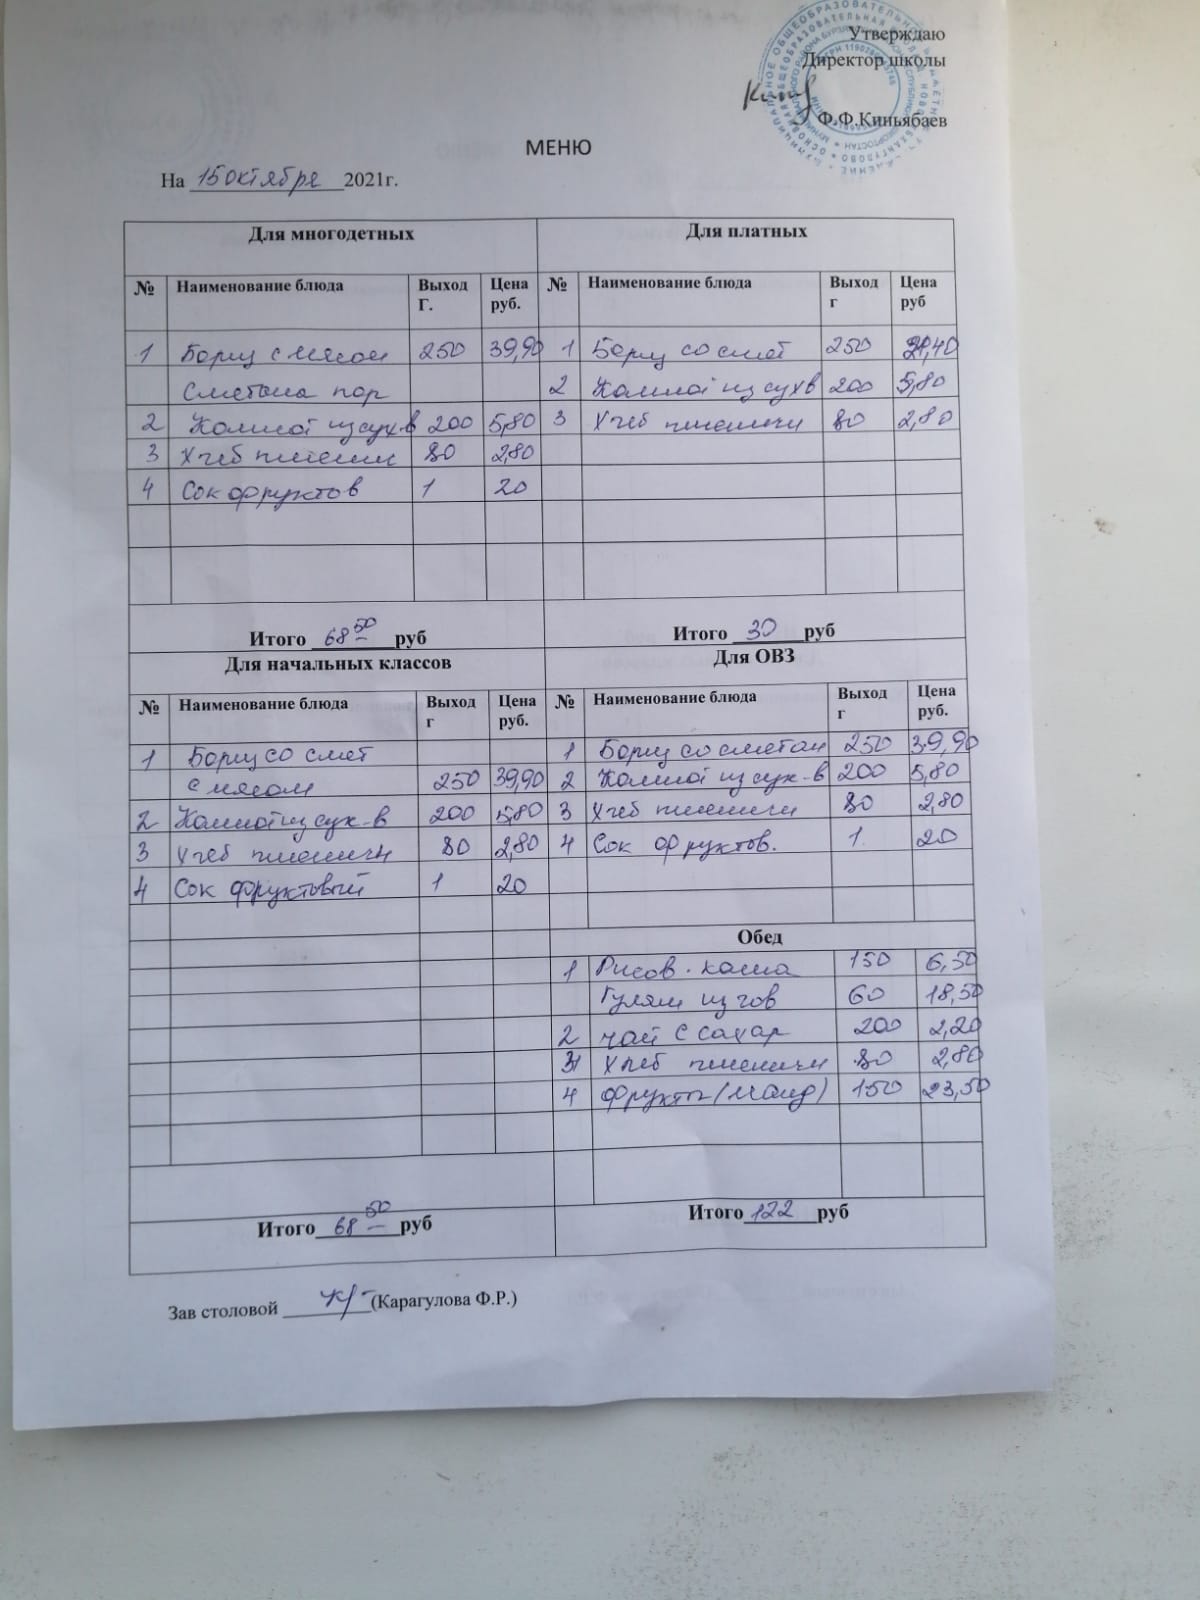 Утверждаю
Директор школы
Ф.Ф.Киньябаев
МЕНЮ
На 15 октября 2021г.
Для многодетных
№ Наименование блюда Выход Г. Цена руб.
1 Борщ с мясом 250 39,90
Сметана пор
2 Компот из сух-в 200 5,80
3 Хлеб пшенич 80 2,80
4 Сок фруктов 1 20
Итого 68 50 руб
Для платных
№ Наименование блюда Выход г Цена руб
1 Борщ со смет 250 21,40
2 Компот из сухв 200 5,80
3 Хлеб пшеничн 80 2,80
Итого 30 руб
Для начальных классов
№ Наименование блюда Выход г Цена руб.
1 Борщ со смет
с мясом 250 39,90
2 Компот из сух-в 200 5,80
3 Хлеб пшеничн 80 2,80
4 Сок фруктовый 1 20
Итого 68 50 руб
Для ОВЗ
№ Наименование блюда Выход г Цена руб.
1 Борщ со сметан 250 39,90
2 Компот из сух-в 200 5,80
3 Хлеб пшеничн 80 2,80
4 Сок фруктов. 1 20
Обед
1 Рисов. каша 150 6,50
Гуляш из гов 60 18,50
2 чай с сахар 200 2,20
3 Хлеб пшеничн 80 2,80
4 Фрукты (манд) 150 23,50
Итого 122 руб
Зав столовой (Карагулова Ф.Р.)